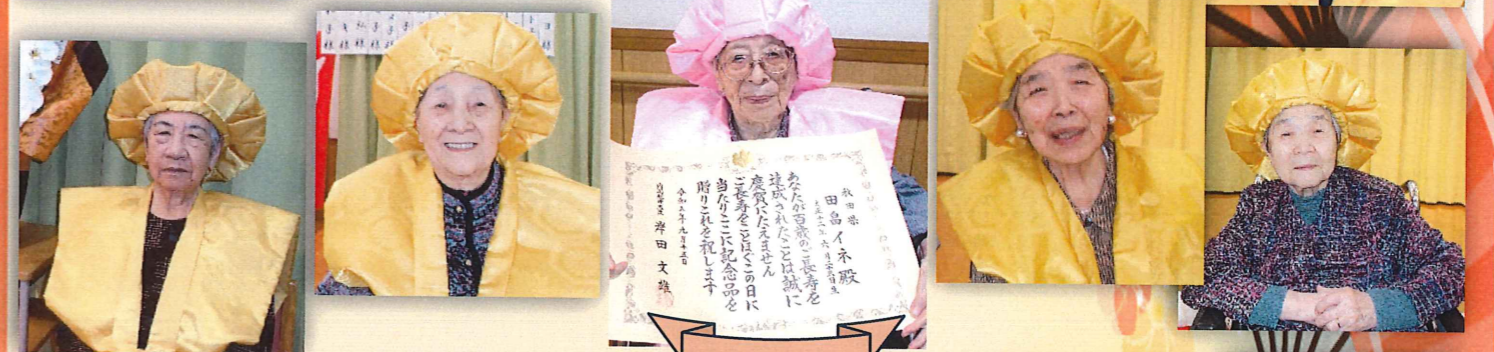 秋田県
田畠イネ殿
あなたが百歳のご長寿を
達成されたことは誠に
慶賀にたえません
ご長寿をことほぐこの日に
当たりここに記念品を
贈りこれを祝します
令和五年九月十五日
内閣総理大臣 岸田文雄